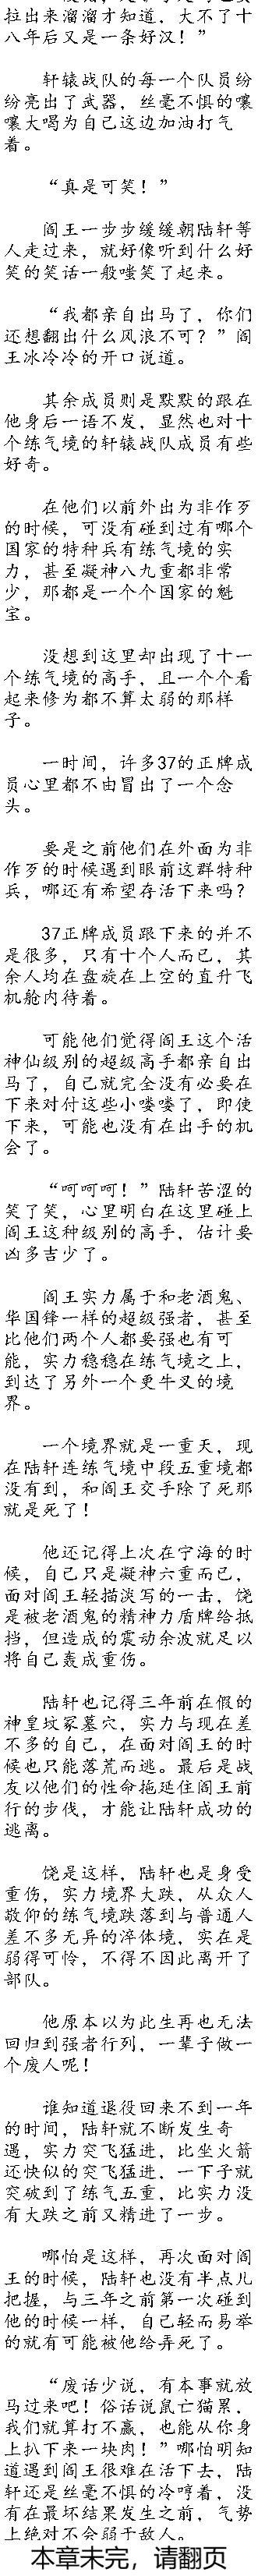 拉出来溜溜才知道，大不了十
八年后又是一条好汉！”
轩辕战队的每一个队员纷
纷亮出了武器，丝毫不惧的嚷
嚷大喝为自己这边加油打气
着。
“真是可笑！”
阎王一步步缓缓朝陆轩等
人走过来，就好像听到什么好
笑的笑话一般嗤笑了起来。
“我都亲自出马了，你们
还想翻出什么风浪不可？”阎
王冰冷冷的开口说道。
其余成员则是默默的跟在
他身后一语不发，显然也对十
个练气境的轩辕战队成员有些
好奇。
在他们以前外出为非作歹
的时候，可没有碰到过有哪个
国家的特种兵有练气境的实
力，甚至凝神八九重都非常
少，那都是一个个国家的魁
宝。
没想到这里却出现了十一
个练气境的高手，且一个个看
起来修为都不算太弱的那样
子。
一时间，许多37的正牌成
员心里都不由冒出了一个念
头。
要是之前他们在外面为非
作歹的时候遇到眼前这群特种
兵，哪还有希望存活下来吗？
37正牌成员跟下来的并不
是很多，只有十个人而已，其
余人均在盘旋在上空的直升飞
机舱内待着。
可能他们觉得阎王这个活
神仙级别的超级高手都亲自出
马了，自己就完全没有必要在
下来对付这些小喽喽了，即使
下来，可能也没有在出手的机
会了。
“呵呵呵！”陆轩苦涩的
笑了笑，心里明白在这里碰上
阎王这种级别的高手，估计要
凶多吉少了。
阎王实力属于和老酒鬼、
华国锋一样的超级强者，甚至
比他们两个人都要强也有可
能，实力稳稳在练气境之上，
到达了另外一个更牛叉的境
界。
一个境界就是一重天，现
在陆轩连练气境中段五重境都
没有到，和阎王交手除了死那
就是死了！
他还记得上次在宁海的时
候，自己只是凝神六重而已，
面对阎王轻描淡写的一击，饶
是被老酒鬼的精神力盾牌给抵
挡，但造成的震动余波就足以
将自己轰成重伤。
陆轩也记得三年前在假的
神皇坟冢墓穴，实力与现在差
不多的自己，在面对阎王的时
候也只能落荒而逃。最后是战
友以他们的性命拖延住阎王前
行的步伐，才能让陆轩成功的
逃离。
饶是这样，陆轩也是身受
重伤，实力境界大跌，从众人
敬仰的练气境跌落到与普通人
差不多无异的淬体境，实在是
弱得可怜，不得不因此离开了
部队。
他原本以为此生再也无法
回归到强者行列，一辈子做一
个废人呢！
谁知道退役回来不到一年
的时间，陆轩就不断发生奇
遇，实力突飞猛进，比坐火箭
还快似的突飞猛进，一下子就
突破到了练气五重，比实力没
有大跌之前又精进了一步。
哪怕是这样，再次面对阎
王的时候，陆轩也没有半点儿
把握，与三年之前第一次碰到
他的时候一样，自己轻而易举
的就有可能被他给弄死了。
“废话少说，有本事就放
马过来吧！俗话说鼠亡猫累，
我们就算打不赢，也能从你身
上扒下来一块肉！”哪怕明知
道遇到阎王很难在活下去，陆
轩还是丝毫不惧的冷哼着，没
有在最坏结果发生之前，气势
上绝对不会弱于敌人。
本章未完，请翻页